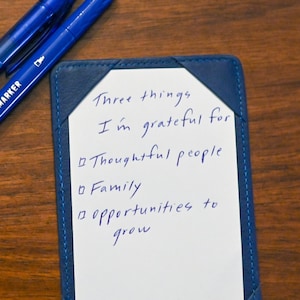 MARKER
Three things
I'm grateful for
□ Thoughtful people
□ Family
□ opportunities to
grow